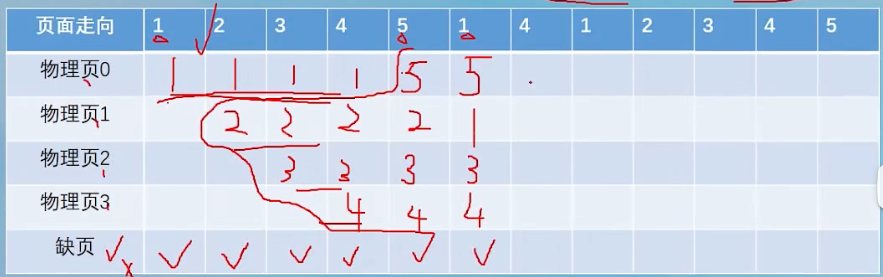 页面走向 1 2 3 4 5 1 4 1 2 3 4 5
物理页0 1 1 1 1 5 5
物理页1 2 2 2 2 1
物理页2 3 3 3 3
物理页3 4 4 4
缺页 ✓ x ✓ ✓ ✓ ✓ ✓ ✓